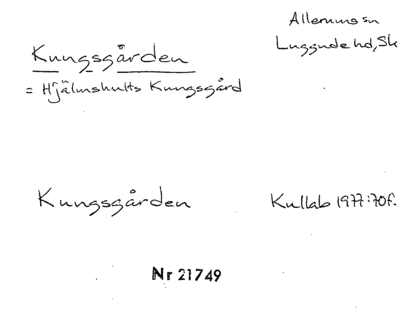 Allerums sn
Luggude hd, Sk
Kungsgården
= Hjälmshults Kungsgård
Kungsgården
Kullab 1977:70f.
Nr 21749